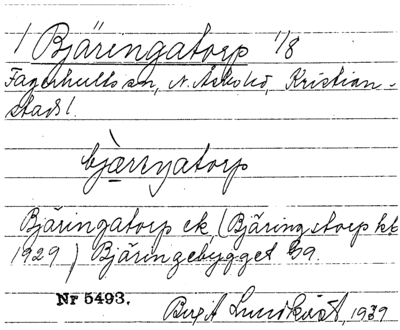 1 Bjäringatorp 1/8
Fagerhults sn, N. Åsbo hd, Kristian-
stads l.
bjærŋatorp
Bjäringatorp ek, (Bjäringstorp kb
1929) Bjäringebygget
Nr 5493.
Birgit Lundkvist, 1939